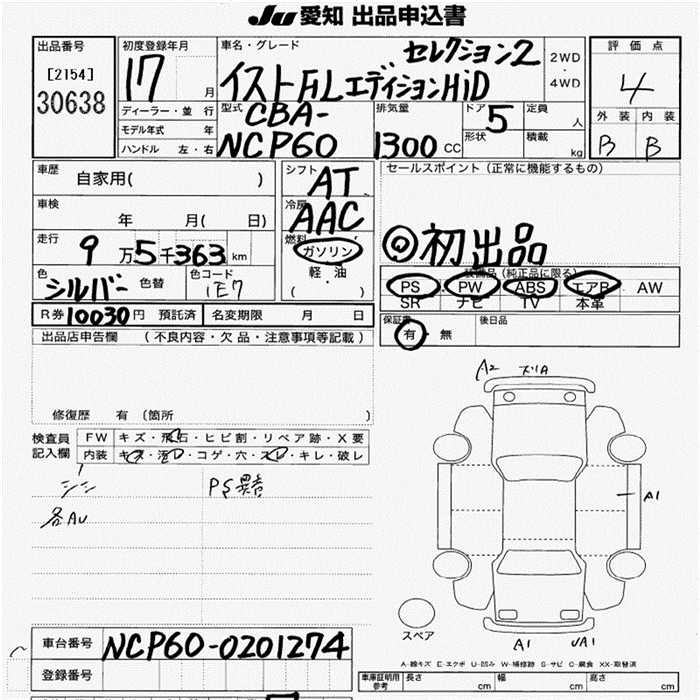 JU 愛知 出品申込書
出品番号
[2154]
30638
初度登録年月
17 月
ディーラー・並 行
モデル年式 年
ハンドル 左・右
車名・グレード
セレクション2
イストFLエディションHiD
2WD
・
4WD
型式 CBA-
NCP60
排気量
1300 CC
ドア 5
形状
定員 人
積載 kg
評価点
4
外装 内装
B B
車歴 自家用( )
車検 年 月( 日)
走行 9万5千363km
色 シルバー 色替
色コード 1E7
シフト AT
冷房 AAC
燃料 ガソリン
・
軽 油
( )
セールスポイント(正常に機能するもの)
◎初出品
装備品(純正品に限る)
PS PW ABS エアB AW
SR ナビ TV 本革
R券 10030円 預託済 名変期限 月 日
保証書
有・無
後日品
出品店申告欄 (不良内容・欠品・注意事項等記載)
修復歴 有(箇所 )
検査員
記入欄
FW キズ・飛石・ヒビ割・リペア跡・X要
内装 キズ・汚レ・コゲ・穴・スレ・キレ・破レ
PS異音
各AU
A2
A1
スペア
A1
A1
A-線キズ E-エクボ U-凹み W-補修跡 S-サビ C-腐食 XX-取替済
車台番号 NCP60-0201274
登録番号
車庫証明用
参考
長さ cm 幅 cm 高さ cm